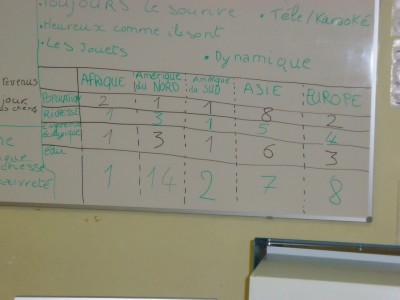 TOUJOURS le sourire
• Télé/Karaoké
• Heureux comme ils sont
• Les Jouets
• Dynamique
AFRIQUE Amérique du NORD Amérique du SUD ASIE EUROPE
Population 2 1 1 8 2
Richesse 1 3 1 5 4
écologique 1 3 1 6 3
eau
1 14 2 7 8
revenus
jour